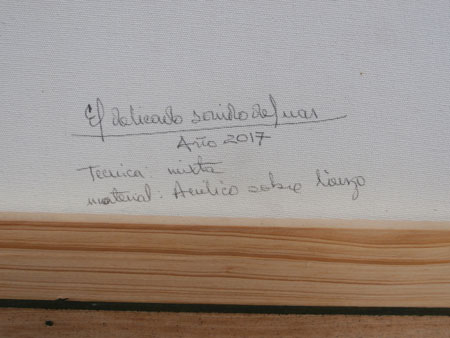 El delicado sonido del mar
Año 2017
Tecnica: mixta
material: Acrilico sobre lienzo